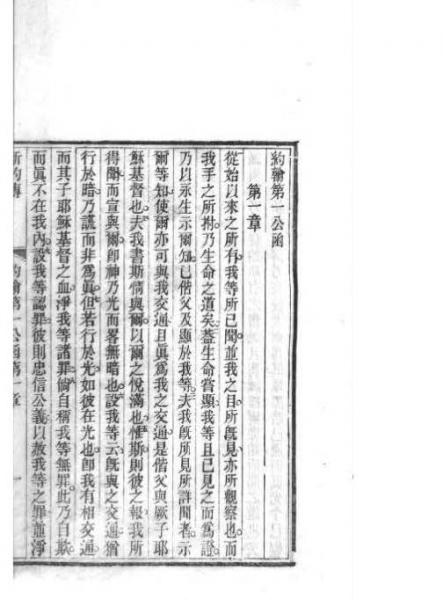 約翰第一公函
第一章
從始以來之所有我等所已聞並我之目所旣見亦所觀察也而
我手之所拊乃生命之道矣葢生命嘗顯我等且已見之而爲證
乃以永生示爾知已偕父及顯於我等夫我旣所見所詳聞者示
爾等知使爾亦可與我交通且眞爲我之交通是偕父與厥子耶
穌基督也夫我書斯情與爾以爾之悅滿也惟斯則彼之報我所
得聞而宣與爾卽神乃光而畧無暗也設我等云旣與之交通猶
行於暗乃謊而非爲眞但若行於光如彼在光也卽我有相交通
而其子耶穌基督之血淨我等諸罪倘自稱我等無罪此乃自欺
而眞不在我內設我等認罪彼則忠信公義以赦我等之罪並淨
新約傳 約翰第一公函第一章 一